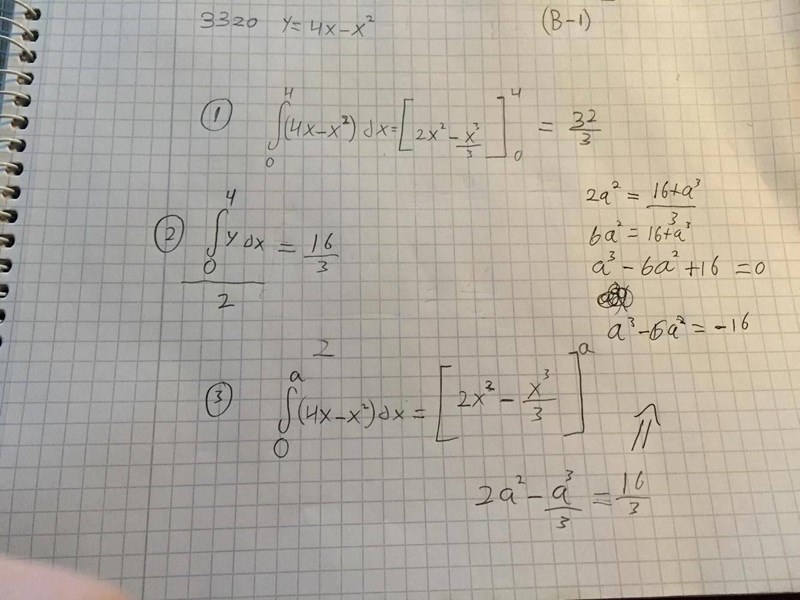 3320 y = 4x-x² (B-1)
① ∫₀⁴ (4x-x²) dx = [2x² - x³/3]₀⁴ = 32/3
2a² = (16+a³)/3
② (∫₀⁴ y dx)/2 = 16/3
6a² = 16+a³
a³ - 6a² + 16 = 0
a³ - 6a² = -16
2
③ ∫₀ᵃ (4x-x²) dx = [2x² - x³/3]ᵃ
⇑
2a² - a³/3 = 16/3